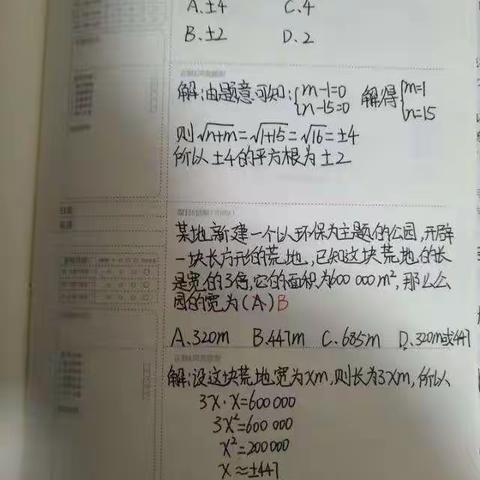 A.±4 C.4
B.±2 D.2
解:由题意可知:{m-1=0 n-15=0 解得{m=1 n=15
则√n+m=√1+15=√16=±4
所以±4的平方根为±2
某地新建一个以环保为主题的公园,开辟
一块长方形的荒地,已知这块荒地的长
是宽的3倍,它的面积为600 000m²,那么公
园的宽为(A)B
A.320m B.447m C.685m D.320m或447
解:设这块荒地宽为xm,则长为3xm,所以
3x·x=600 000
3x²=600 000
x²=200000
x≈±447